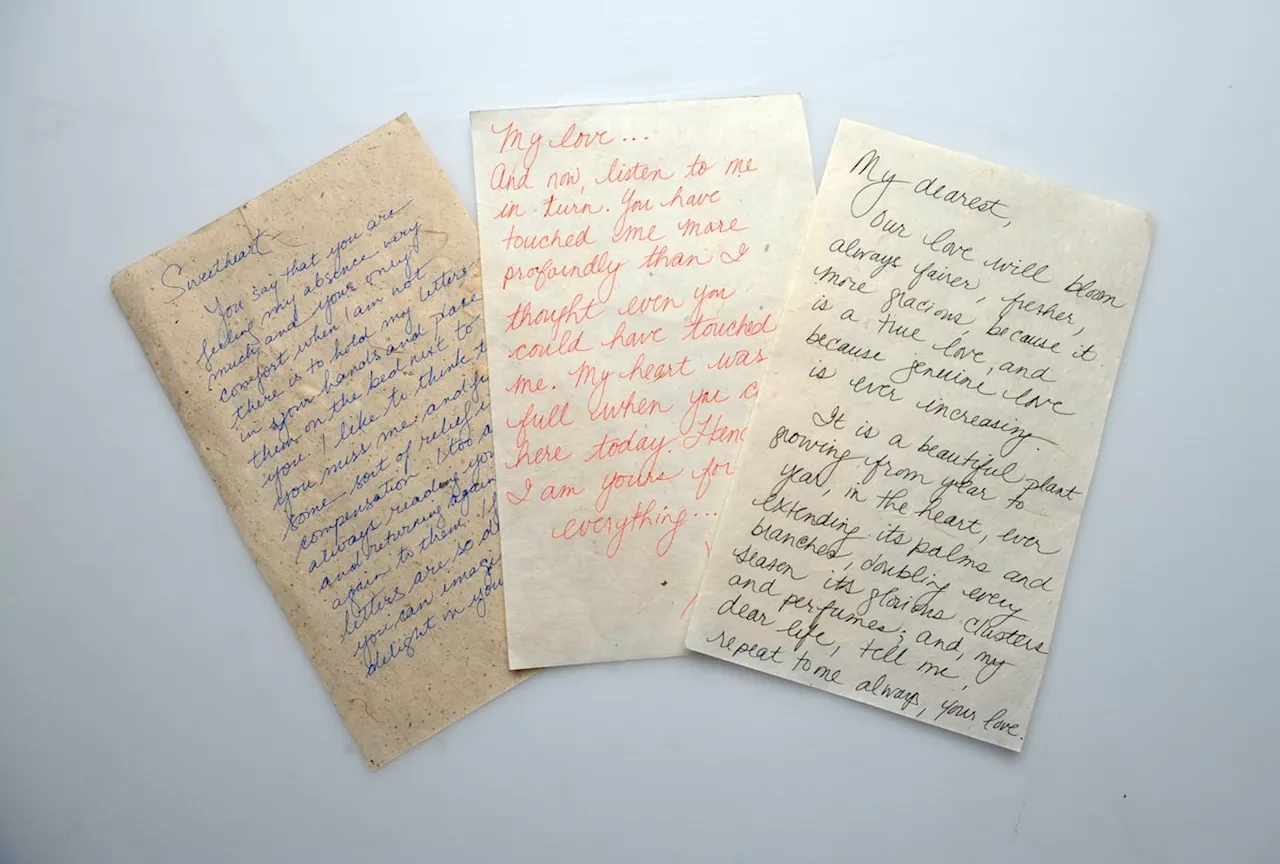 Sweetheart
You say that you are
feeling my absence very
much, and your only
comfort when I am not
there is to hold my letters
in your hands and place
them on the bed next to
you. I like to think
you miss me and
some sort of relief
compensation. I too
always reading
and returning again
again to them.
letters are so
you can
delight in
My love...
And now, listen to me
in turn. You have
touched me more
profoundly than I
thought even you
could have touched
me. My heart was
full when you
here today.
I am yours for
everything...
My dearest,
Our love will bloom
always fairer, fresher,
more gracious, because it
is a true love, and
because genuine love
is ever increasing.
It is a beautiful plant
growing from year to
year, in the heart, ever
extending its palms and
branches, doubling every
season its glorious clusters
and perfumes; and, my
dear life, tell me,
repeat to me always, your love.